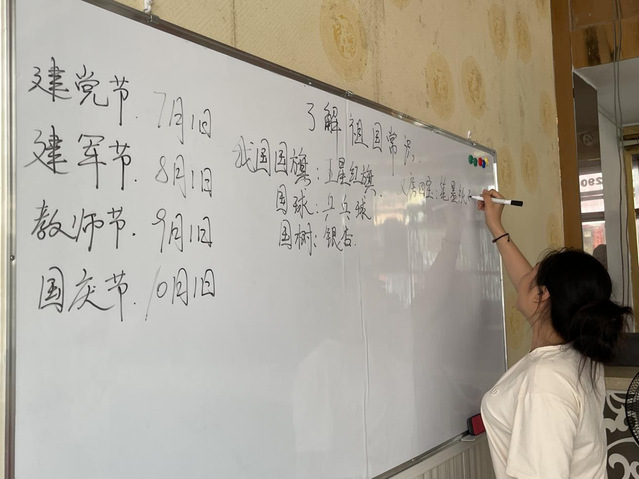 建党节.7月1日
建军节.8月1日
教师节.9月1日
国庆节.10月1日
了解祖国常识
我国国旗:五星红旗.
国球:乒乓球
国树:银杏.
文房四宝:笔墨纸